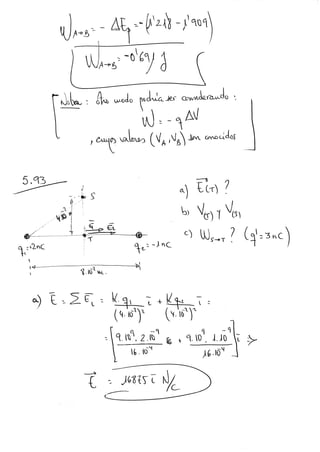 W_{A→B} = - ΔE_p = -(1'218 - 1'909)
W_{A→B} = -0'691 J
Nota: Otro modo podría ser considerando:
W = -q ΔV
, cuyos valores (V_A, V_B) son conocidos
5.93
S
a) \vec{E}(T) ?
4·10^{-2}
b) V_{(T)} y V_{(S)}
E_1 E_2
T
c) W_{S→T} ? (q' = 3nC)
q_1 = 2nC
q_2 = -1nC
8·10^{-2} m
a) \vec{E} = Σ\vec{E}_i = \frac{K·q_1}{(4·10^{-2})^2} \vec{i} + \frac{K q_2}{(4·10^{-2})^2} \vec{i} =
= [\frac{9·10^9 · 2·10^{-9}}{16·10^{-4}} + \frac{9·10^9 · 1·10^{-9}}{16·10^{-4}}] \vec{i} ⇒
\vec{E} = 16875 \vec{i} N/C